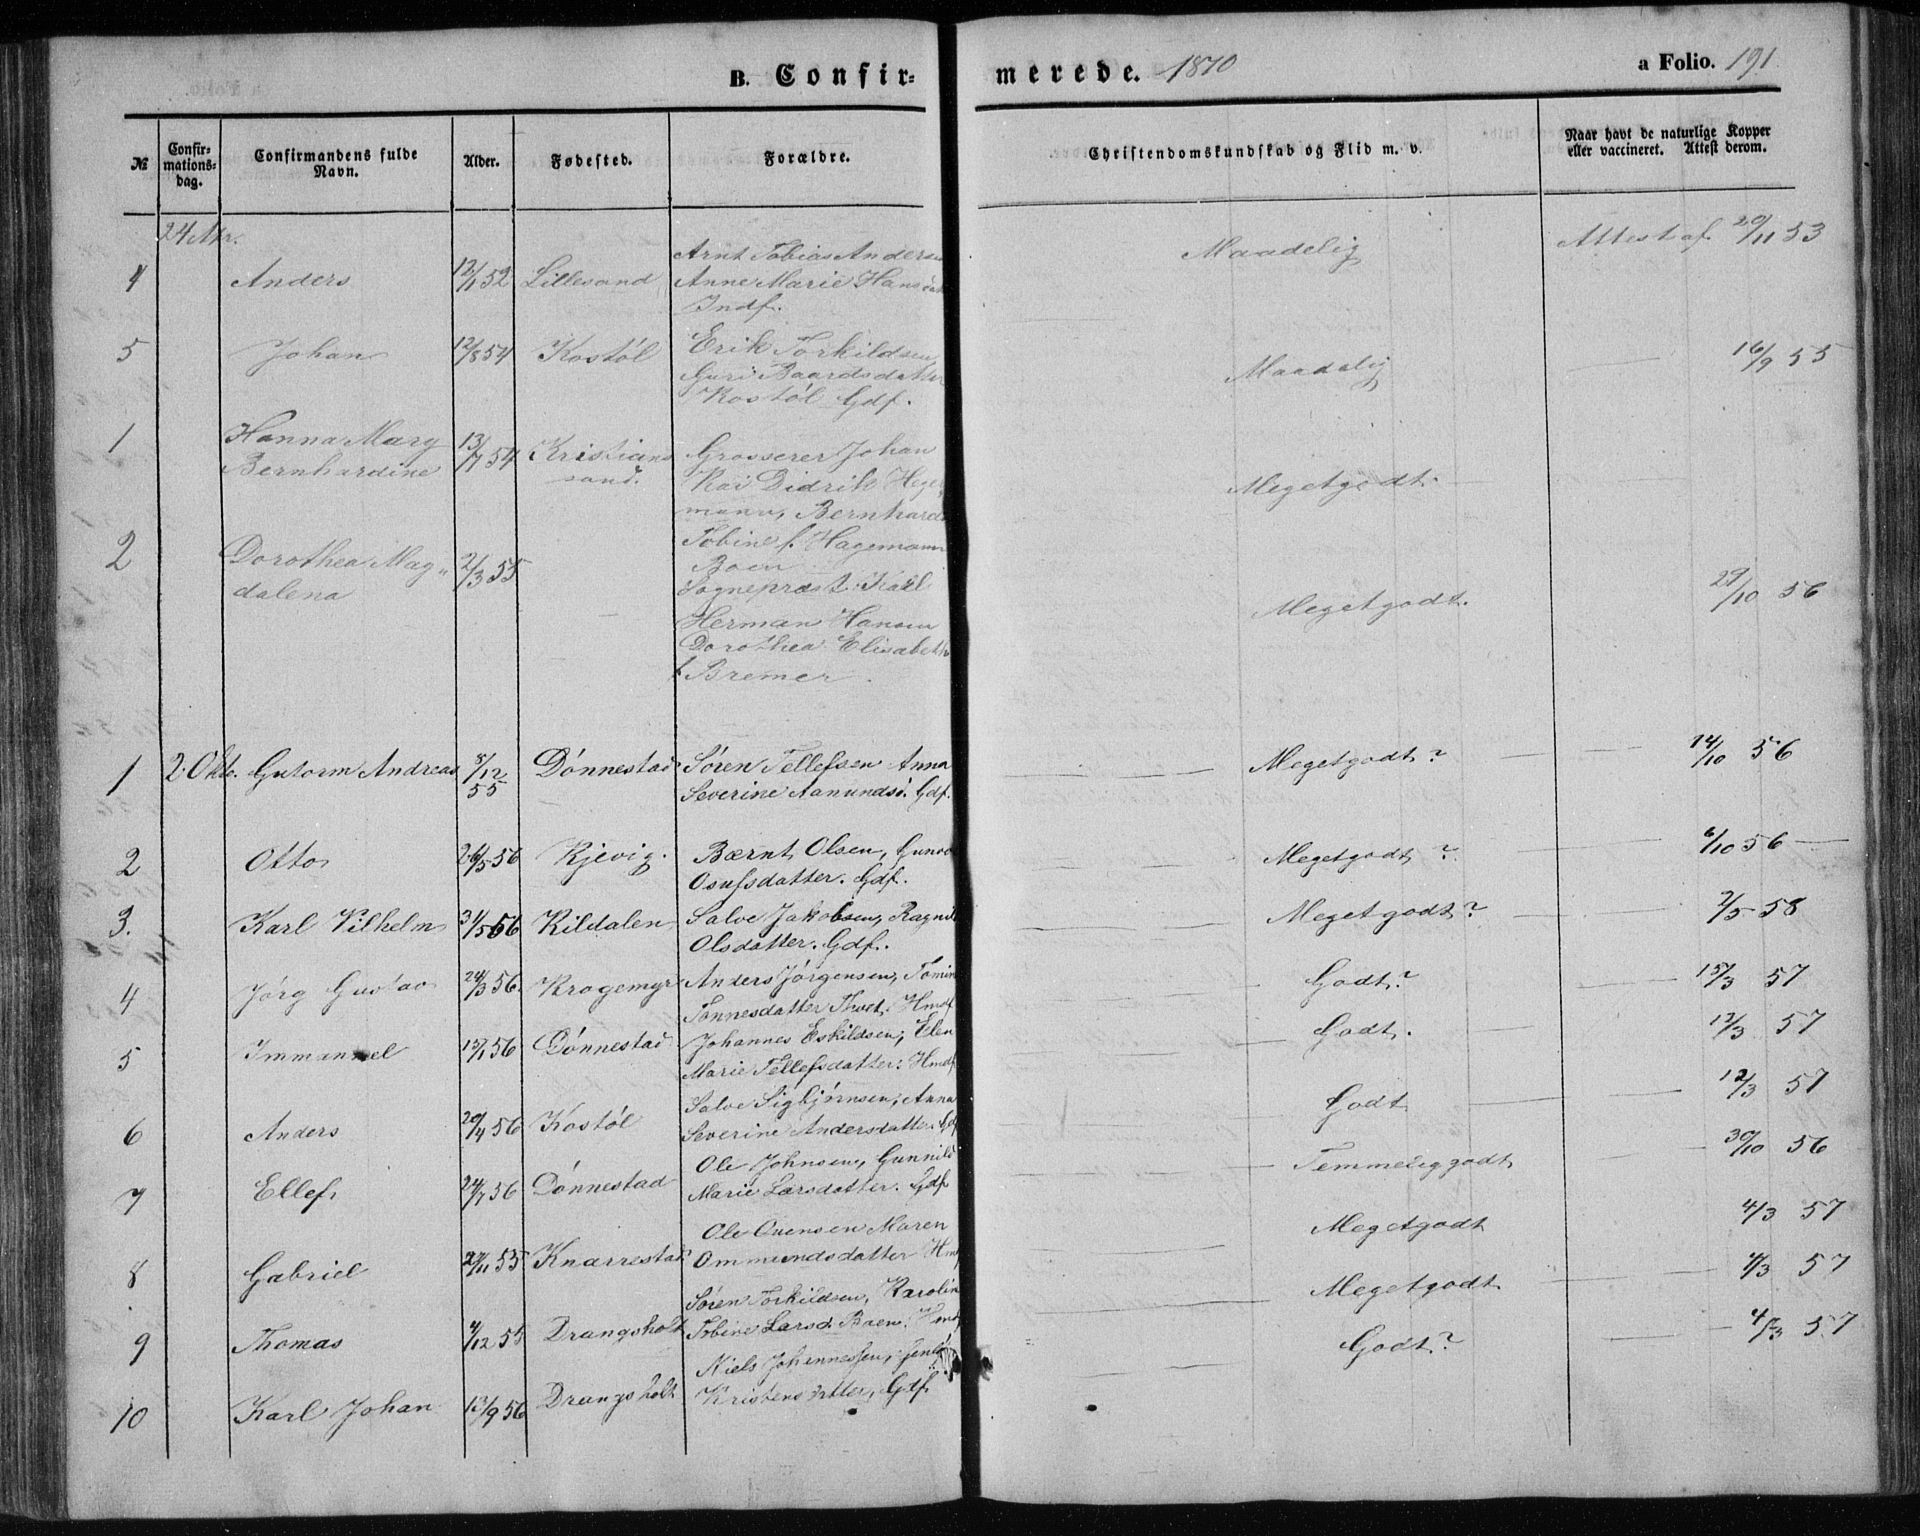 B. Confir- merede. 1870 a Folio. 191
№ Confir-mations-dag. Confirmandens fulde Navn. Alder. Fødested. Forældre. Christendomskundskab og Flid m. v. Naar havt de naturlige Kopper eller vaccineret. Attest derom.
24 Apr.
4 Anders 12/1 52 Lillesand Arnt Tobias Andersen
Anne Marie Hansdat
Indf.
Maadelig Attest af 20/11 53
5 Johan 12/8 54 Kostöl Erik Torkildsen
Guri Baardsdatter
Kostöl Gdf.
Maadelig 16/9 55
1 Hanna Mary
Bernhardine 13/7 54 Kristians
sand.
Grosserer Johan
Kai Didrik Hege
mann, Bernhard
Tobine f. Hagemann
Boen
Megetgodt.
2 Dorothea Mag-
dalena 2/3 55
Sognepræst Karl
Herman Hansen
Dorothea Elisabeth
f Bremer.
Megetgodt. 29/10 56
1 2. Okto. Gutorm Andreas 8/12 55 Dönnestad Sören Tellefsen Anna
Severine Aanundsd. Gdf.
Megetgodt? 14/10 56
2 Otto 26/5 56 Kjevig. Bærnt Olsen, Guno
Osufsdatter. Gdf.
Megetgodt? 6/10 56
3. Karl Vilhelm 31/5 56 Kildalen Salve Jakobsen, Ragnil
Olsdatter. Gdf.
Megetgodt? 2/5 58
4 Jörg Gustav 24/3 56. Kragemyr Anders Jörgensen, Tomin
Tönnesdatter Thvet. Hmdf
Godt? 15/3 57
5 Immanuel 15/1 56 Dönnestad Johannes Eskildsen, Elen
Marie Tellefsdatter. Hmdf
Godt. 12/3 57
6 Anders 20/4 56 Kostöl Salve Sigbjörnsen, Anna
Severine Andersdatter. Gdf
Godt 12/3 57
7 Ellef 24/7 56 Dönnestad Ole Johnsen, Gunnild
Marie Larsdatter. Gdf
Temmelig godt 30/10 56
8 Gabriel 27/11 55 Knarrestad Ole Ouensen Maren
Ommundsdatter Hmf
Megetgodt 4/3 57
9 Thomas 4/12 55 Drangsholt Sören Torkildsen, Karolin
Tobine Larsd. Boen. Hmdf
Megetgodt 4/3 57
10 Karl Johan 13/9 56 Drangsholt Niels Johannessen,
Kristensdatter, Gdf.
Godt? 4/3 57